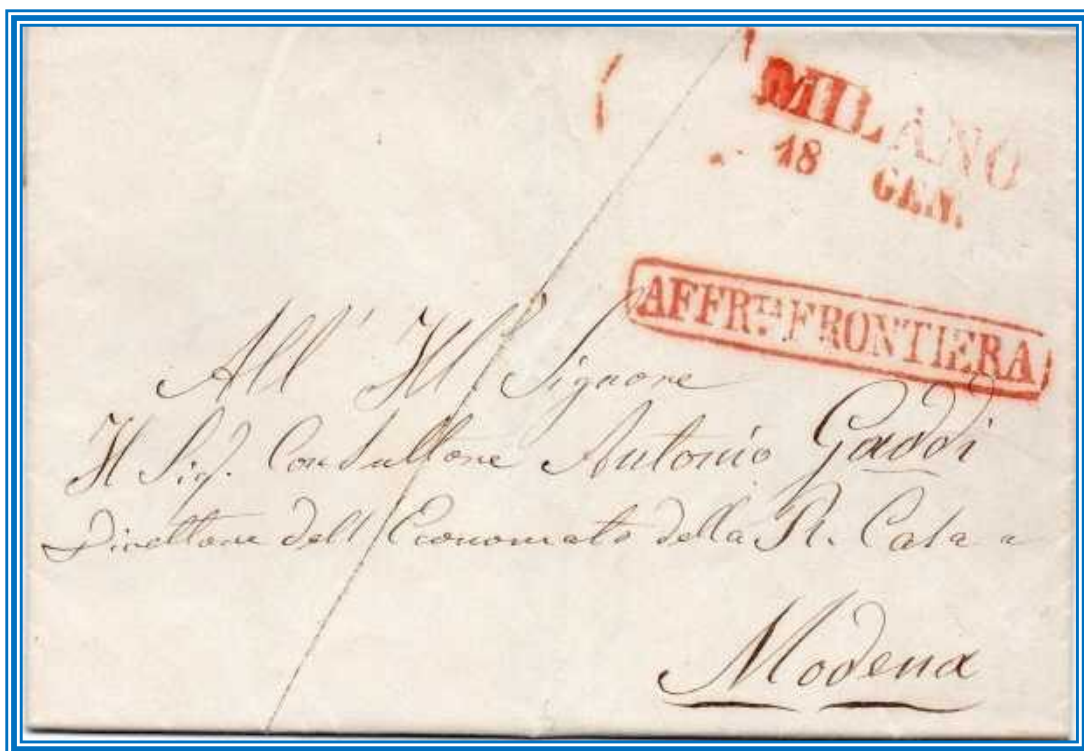 MILANO
18 GEN.
AFFR.TA FRONTIERA
All' Ill. Signore
Il Sig. Consultore Antonio Gaddi
Direttore dell'Economato della R. Casa a
Modena